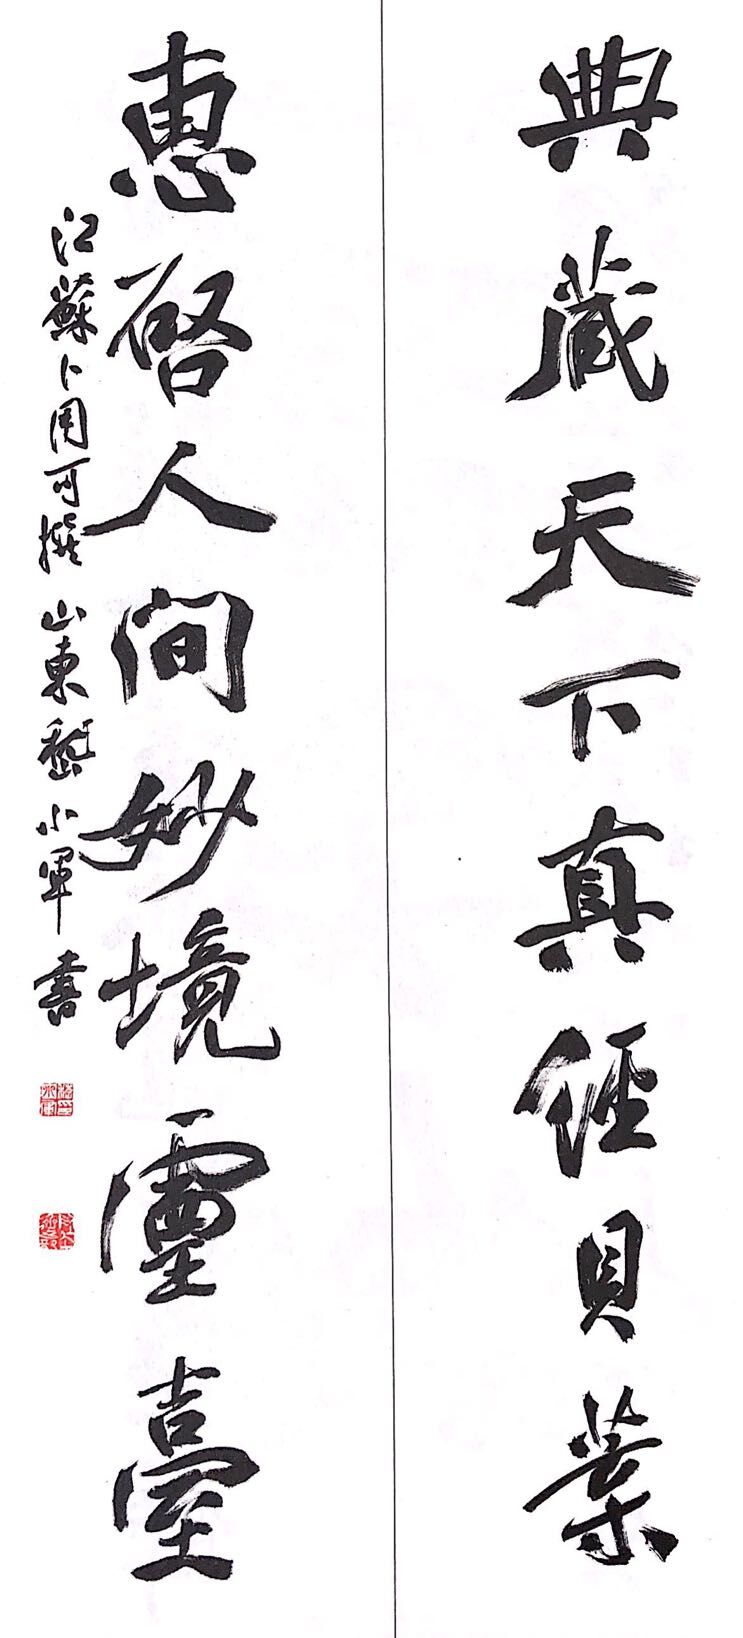 典藏天下真經貝葉
惠啓人间妙境靈臺
江蘇卜用可撰 山東嵇小軍書